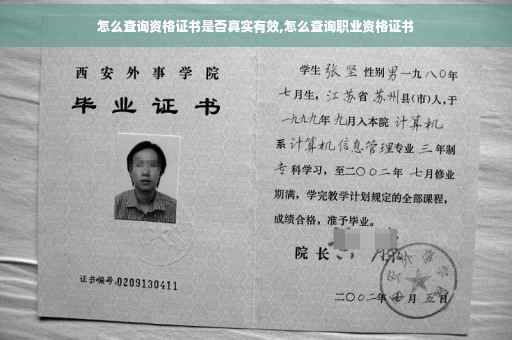 怎么查询资格证书是否真实有效,怎么查询职业资格证书
西安外事学院
毕业证书
证书编号:0209130411
学生 张坚 性别 男 一九八〇年
七月生, 江苏省 苏州县(市)人,于
一九九九年 九月入本院 计算机
系 计算机信息管理专业 三 年制
专科学习,至二〇〇二年 七月修业
期满,学完教学计划规定的全部课程,
成绩合格,准予毕业。
院长
二〇〇二年 七月 五日